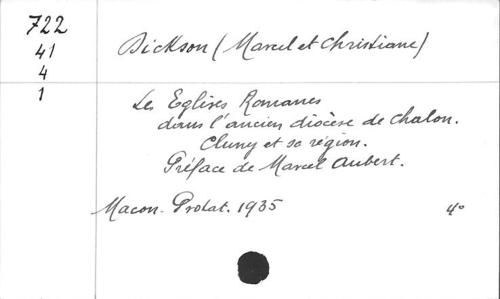 722
41
4
1
Dickson (Marcel et Christiane)
Les Eglises Romanes
dans l'ancien diocèse de Chalon.
Cluny et sa région.
Préface de Marcel Aubert.
Macon. Protat. 1935 4°